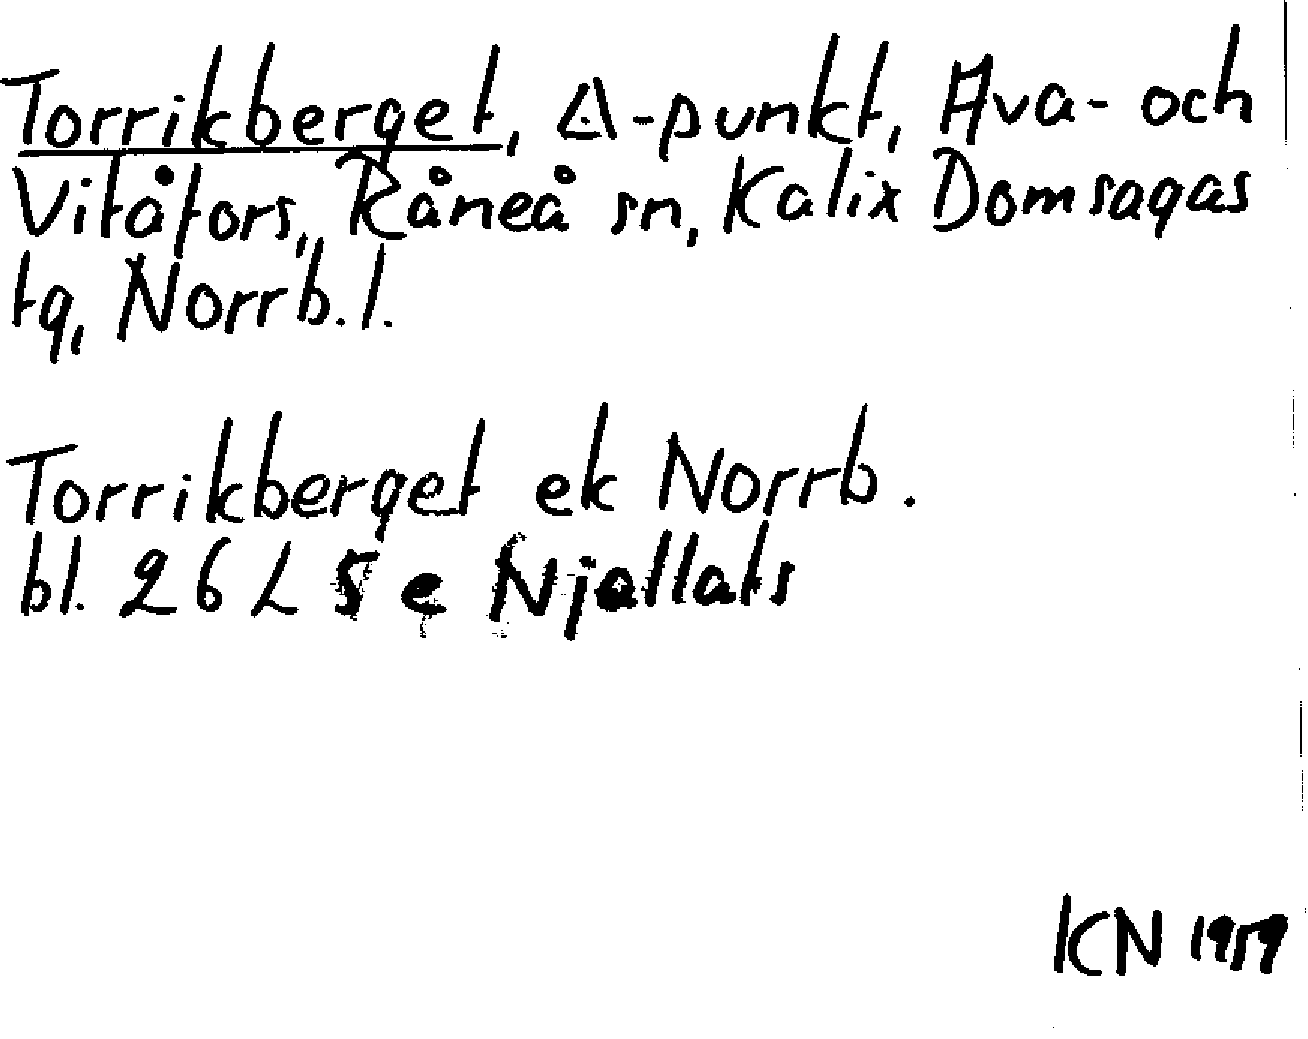 Torrikberget, Δ-punkt, Ava- och
Vitåfors, Råneå sn, Kalix Domsagas
tg, Norrb. l.
Torrikberget ek Norrb.
bl. 26 L 5 e Njallats
KCN 1959